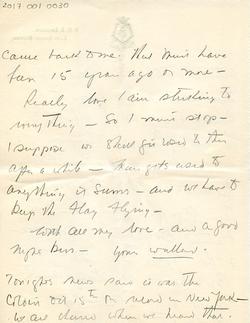 2017 001 0030
came back to me. That must have
been 15 years ago or more –
Really love I am sticking to
everything – So I must stop –
I suppose we shall get used to this
after a while – Man gets used to
anything it seems – and we have to
keep the Flag Flying –
With all my love – and a good
night kiss – your
Tonights news said it was the
Coldest Oct 15th on record in New York –
we all cheered when we heard that.